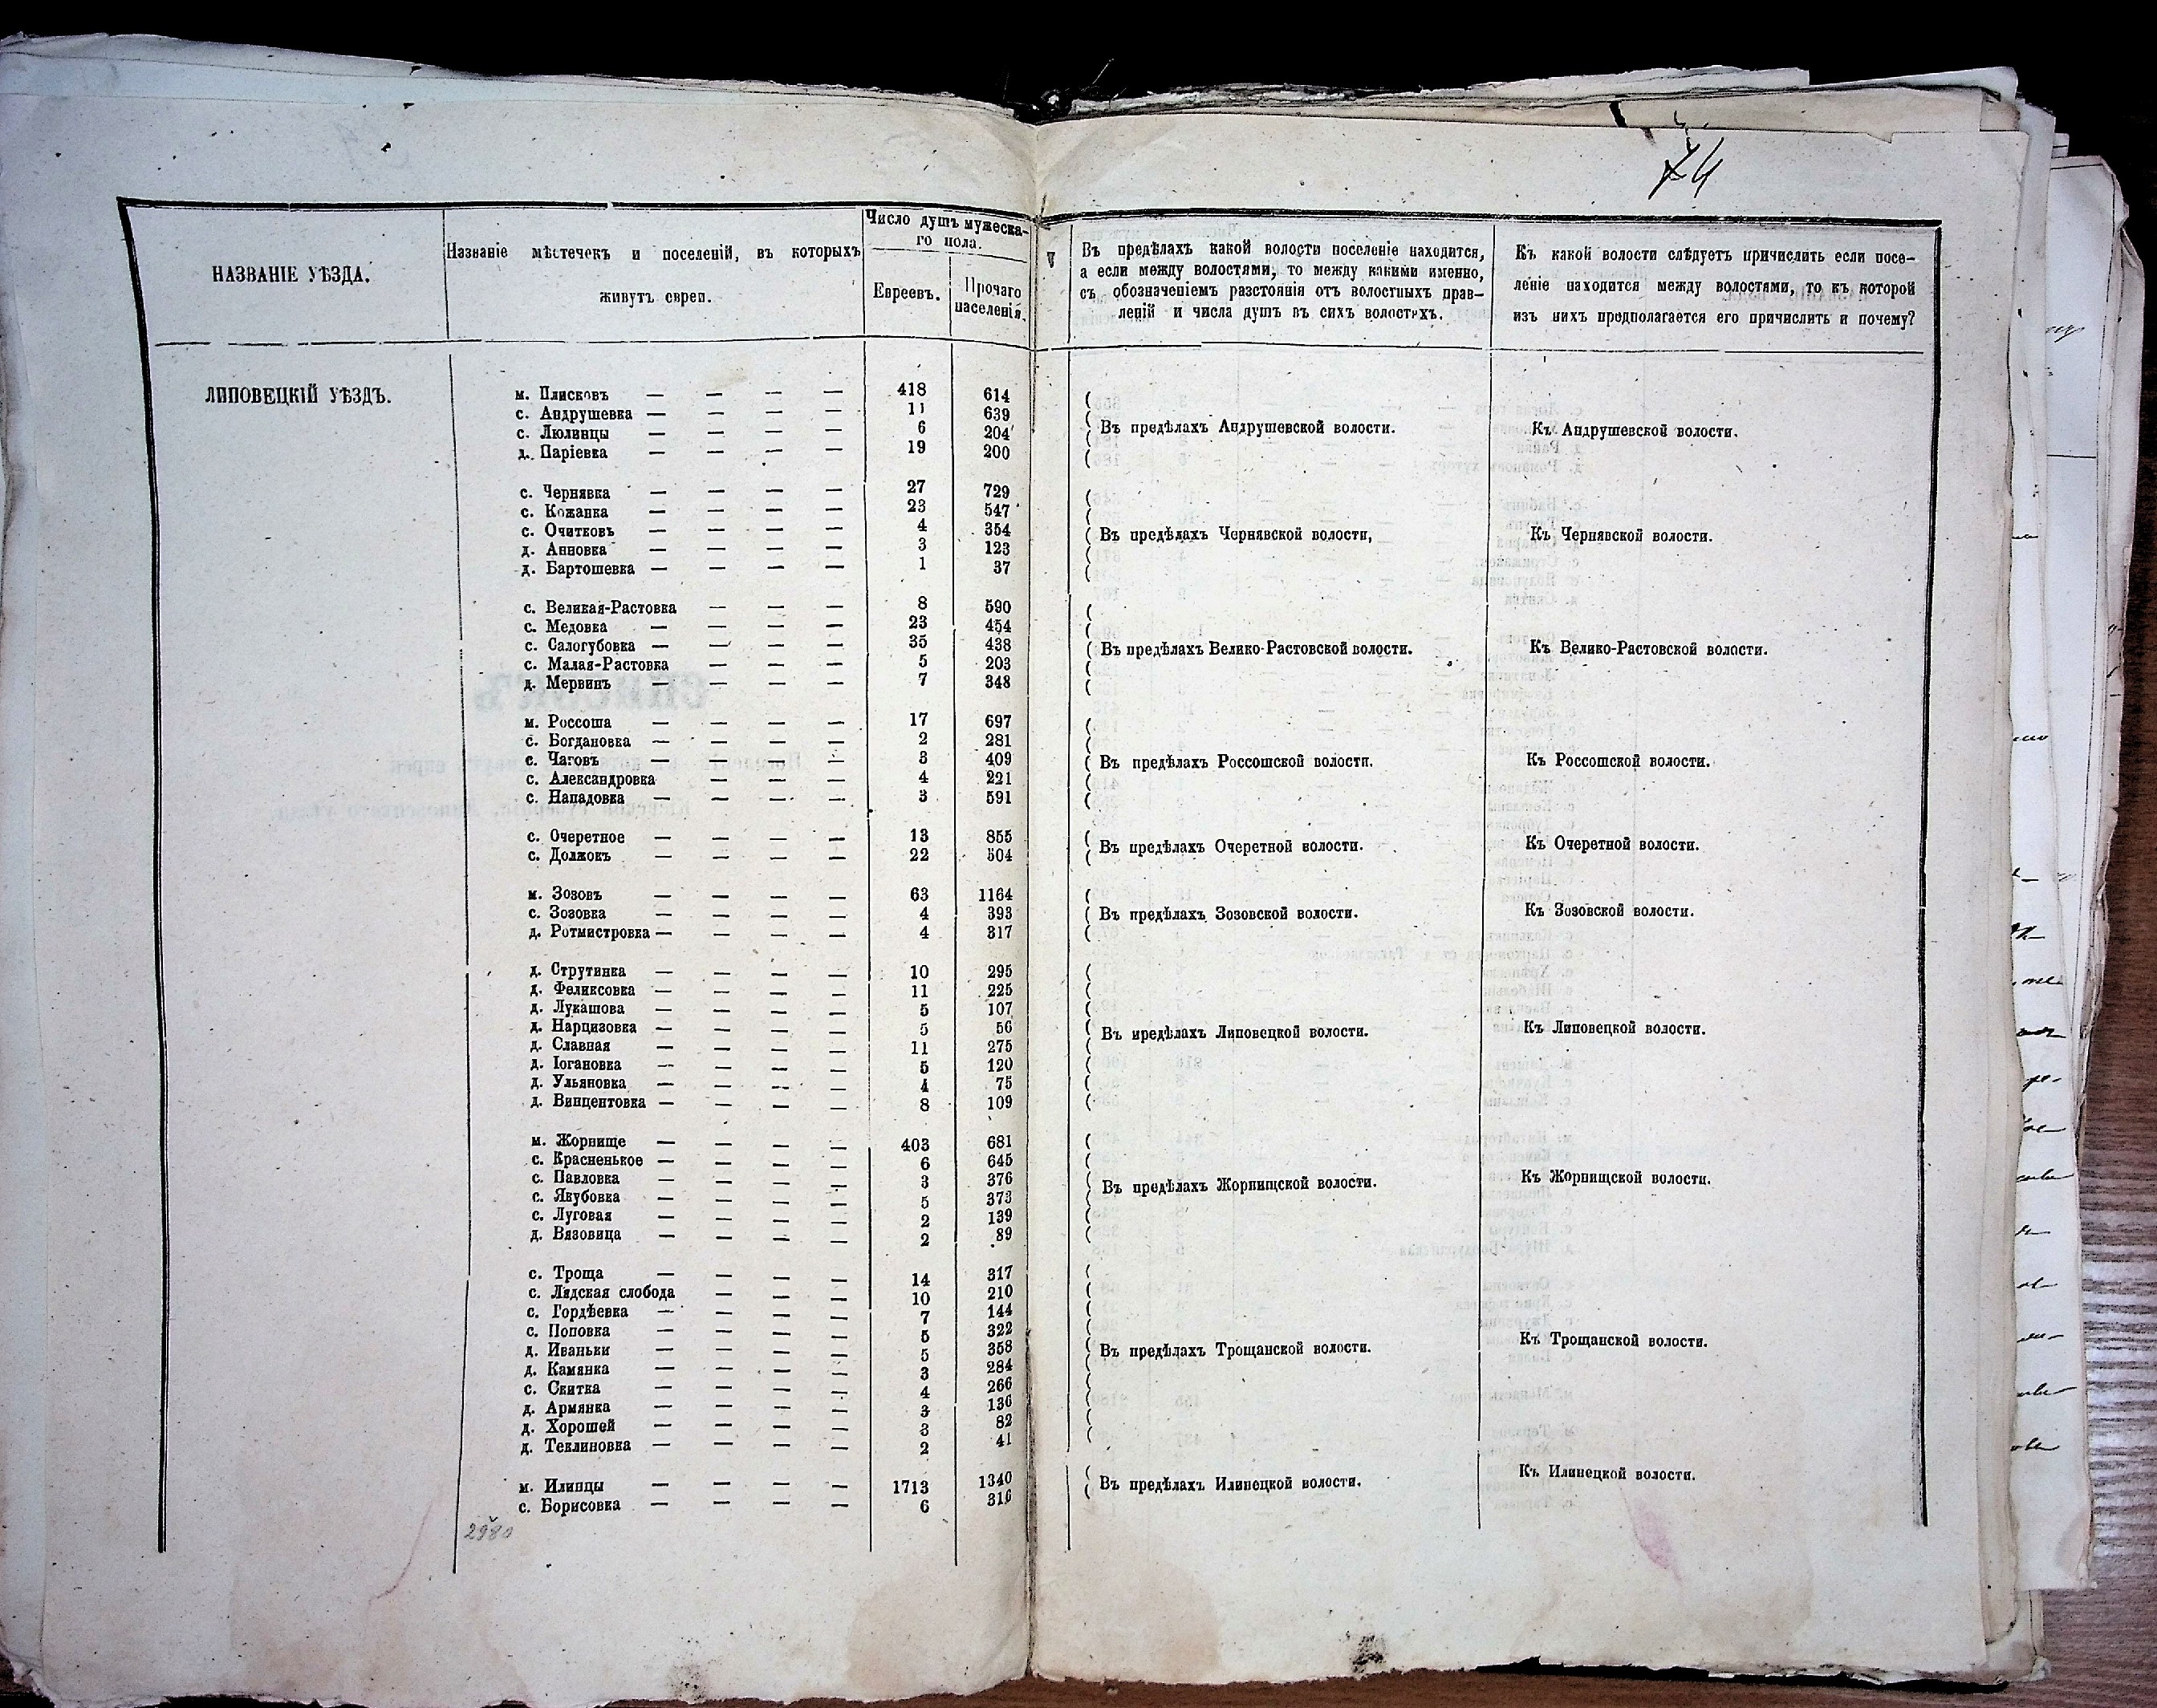 74
НАЗВАНІЕ УѢЗДА.
Названіе мѣстечекъ и поселеній, въ которыхъ
живутъ евреи.
Число душъ мужеска-
го пола.
Евреевъ.
Прочаго
населенія.
Въ предѣлахъ какой волости поселеніе находится,
а если между волостями, то между какими именно,
съ обозначеніемъ разстоянія отъ волостныхъ прав-
леній и числа душъ въ сихъ волостяхъ.
Къ какой волости слѣдуетъ причислить если посе-
леніе находится между волостями, то къ которой
изъ нихъ предполагается его причислить и почему?
ЛИПОВЕЦКІЙ УѢЗДЪ.
м. Плисковъ — — — — 418 614
с. Андрушевка — — — — 11 639
с. Люлинцы — — — — 6 204
д. Паріевка — — — — 19 200
Въ предѣлахъ Андрушевской волости. Къ Андрушевской волости.
с. Чернявка — — — — 27 729
с. Кожанка — — — — 23 547
с. Очитковъ — — — — 4 354
д. Анновка — — — — 3 123
д. Бартошевка — — — — 1 37
Въ предѣлахъ Чернявской волости, Къ Чернявской волости.
с. Великая-Растовка — — — 8 590
с. Медовка — — — — 23 454
с. Салогубовка — — — — 35 438
с. Малая-Растовка — — — 5 203
д. Мервинъ — — — — 7 348
Въ предѣлахъ Велико-Растовской волости. Къ Велико-Растовской волости.
м. Россоша — — — — 17 697
с. Богдановка — — — — 2 281
с. Чаговъ — — — — 3 409
с. Александровка — — — 4 221
с. Нападовка — — — — 3 591
Въ предѣлахъ Россошской волости. Къ Россошской волости.
с. Очеретное — — — — 13 855
с. Должокъ — — — — 22 504
Въ предѣлахъ Очеретной волости. Къ Очеретной волости.
м. Зозовъ — — — — 63 1164
с. Зозовка — — — — 4 393
д. Ротмистровка — — — — 4 317
Въ предѣлахъ Зозовской волости. Къ Зозовской волости.
д. Струтинка — — — — 10 295
д. Феликсовка — — — — 11 225
д. Лукашова — — — — 5 107
д. Нарцизовка — — — — 5 56
д. Славная — — — — 11 275
д. Іогановка — — — — 5 120
д. Ульяновка — — — — 4 75
д. Винцентовка — — — — 8 109
Въ предѣлахъ Липовецкой волости. Къ Липовецкой волости.
м. Жорнище — — — — 403 681
с. Красненькое — — — — 6 645
с. Павловка — — — — 3 376
с. Якубовка — — — — 5 373
с. Луговая — — — — 2 139
д. Вязовица — — — — 2 89
Въ предѣлахъ Жорнищской волости. Къ Жорнищской волости.
с. Троща — — — — 14 317
с. Лядская слобода — — — 10 210
с. Гордѣевка — — — — 7 144
с. Поповка — — — — 5 322
д. Иваньки — — — — 5 358
д. Камянка — — — — 3 284
с. Скитка — — — — 4 266
д. Армянка — — — — 3 136
д. Хорошей — — — — 3 82
д. Теклиновка — — — — 2 41
Въ предѣлахъ Трощанской волости. Къ Трощанской волости.
м. Илинцы — — — — 1713 1340
с. Борисовка — — — — 6 316
Въ предѣлахъ Илинецкой волости. Къ Илинецкой волости.
2980